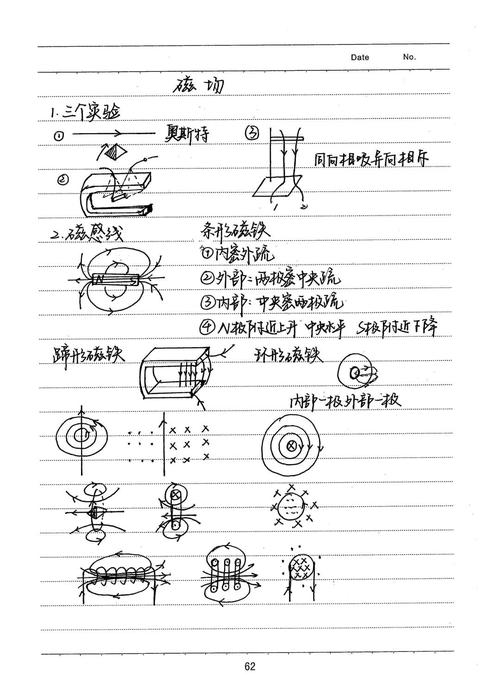 Date No.
磁场
1.三个实验
① 奥斯特
③
同向相吸异向相斥
②
1 2
2.磁感线
条形磁铁
①内密外疏
N S
②外部:两极密中央疏
③内部:中央密两极疏
④N极附近上升 中央水平 S极附近下降
蹄形磁铁
环形磁铁
内部一极外部一极
62